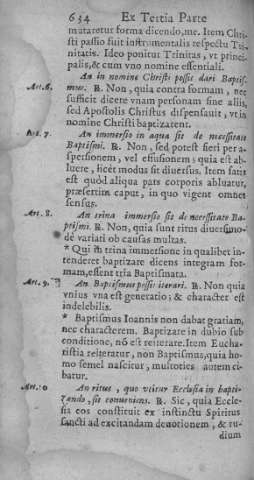 634 Ex Tertia Parte
mutaretur forma dicendo, me. Item Chri-
sti passio fuit instrumentalis respectu Tri-
nitatis. Ideo ponitur Trinitas, vt princi-
palis, & cum vno nomine essentiali.
An in nomine Christi possit dari Baptis-
Art. 6. mus. R. Non, quia contra formam, nec
sufficit dicere vnam personam sine aliis,
sed Apostolis Christus dispensauit, vt in
nomine Christi baptizarent.
Art. 7. An immersio in aqua sit de necessitate
Baptismi. R. Non, sed potest fieri per a-
spersionem, vel effusionem; quia est ab-
luere, licet modus sit diuersus. Item satis
est quòd aliqua pars corporis abluatur,
præsertim caput, in quo vigent omnes
sensus.
Art. 8. An trina immersio sit de necessitate Ba-
ptismi. R. Non, quia sunt ritus diuersimo-
dè variati ob causas multas.
* Qui in trina immersione in qualibet in-
tenderet baptizare dicens integram for-
mam, essent tria Baptismata.
Art. 9. An Baptismus possit iterari. R. Non quia
vnius vna est generatio; & character est
indelebilis.
* Baptismus Ioannis non dabat gratiam,
nec characterem. Baptizare in dubio sub
conditione, nō est reiterare. Item Eucha-
ristia reiteratur, non Baptismus, quia ho-
mo semel nascitur, multoties autem ci-
batur.
Art. 10 An ritus, quo vtitur Ecclesia in bapti-
zando, sit conueniens. R. Sic, quia Eccle-
sia eos constituit ex instinctu Spiritus
sancti ad excitandam deuotionem, & tu-
dium